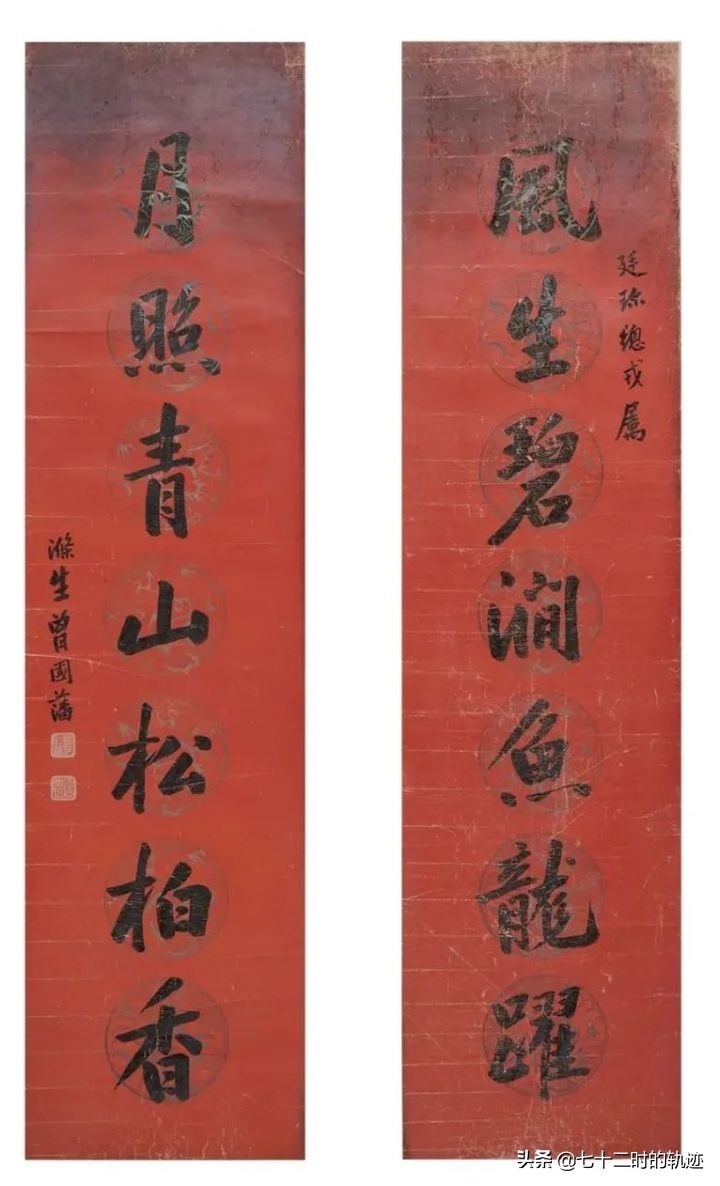 風生碧澗魚龍躍
廷珎總戎屬
月照青山松柏香
滌生曾國藩
头条 @七十二时的轨迹